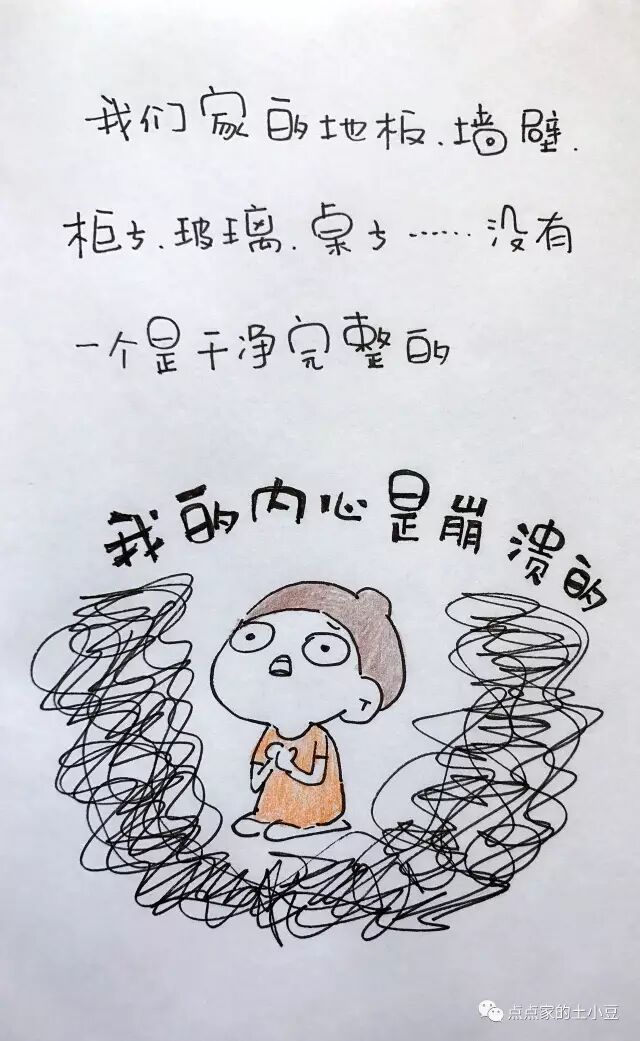 我们家的地板、墙壁、
柜子、玻璃、桌子……没有
一个是干净完整的
我的内心是崩溃的
点点家的土小豆